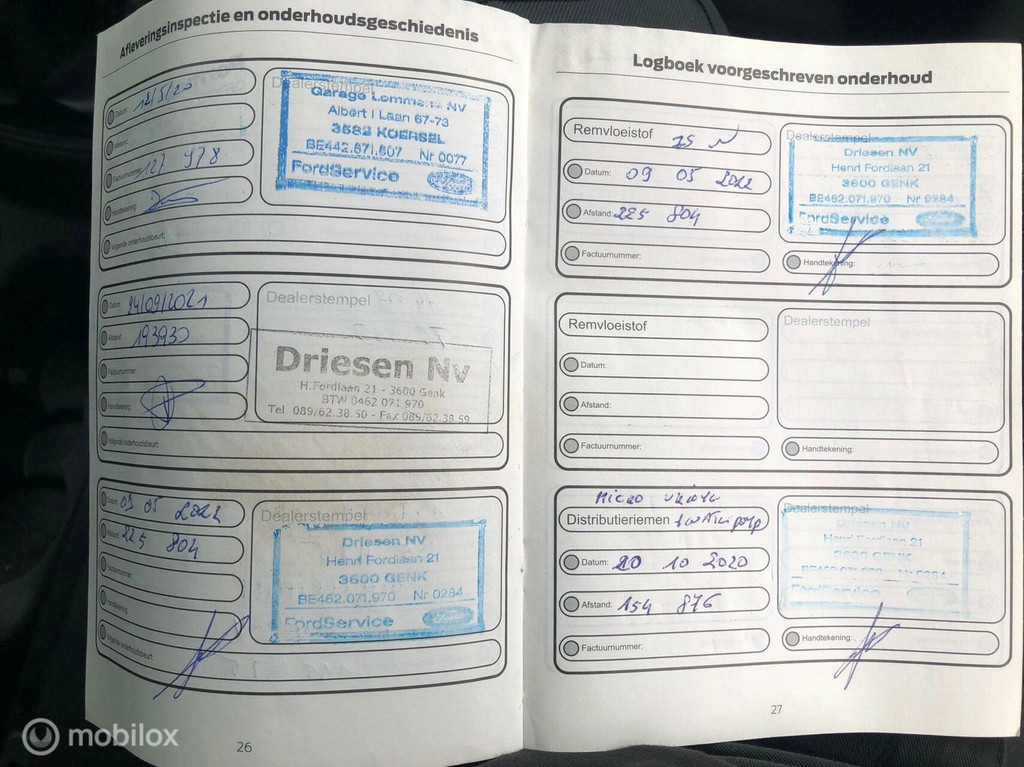 Afleveringsinspectie en onderhoudsgeschiedenis
Datum: 12/5/20
Afstand:
Factuurnummer: 127 978
Handtekening:
Volgende onderhoudsbeurt:
Dealerstempel
Garage Lommens NV
Albert I Laan 67-73
3582 KOERSEL
BE442.871.807 Nr 0077
FordService
Datum: 24/09/2021
Afstand: 193930
Factuurnummer:
Handtekening:
Volgende onderhoudsbeurt:
Dealerstempel
Driesen Nv
H.Fordlaan 21 - 3600 Genk
BTW 0462 071 970
Tel. 089/62.38.50 - Fax 089/62.38.59
Datum: 09 05 2022
Afstand: 225 804
Factuurnummer:
Handtekening:
Volgende onderhoudsbeurt:
Dealerstempel
Driesen NV
Henri Fordlaan 21
3600 GENK
BE462.071.970 Nr 0284
FordService
26
Logboek voorgeschreven onderhoud
Remvloeistof
Datum: 09 05 2022
Afstand: 225 804
Factuurnummer:
Dealerstempel
Driesen NV
Henri Fordlaan 21
3600 GENK
BE462.071.970 Nr 0284
FordService
Handtekening:
Remvloeistof
Datum:
Afstand:
Factuurnummer:
Dealerstempel
Handtekening:
Micro
Distributieriemen
Datum: 20 10 2020
Afstand: 154 876
Factuurnummer:
Dealerstempel
Driesen NV
Henri Fordlaan 21
3600 GENK
BE462.071.970 Nr 0284
FordService
Handtekening:
27
mobilox